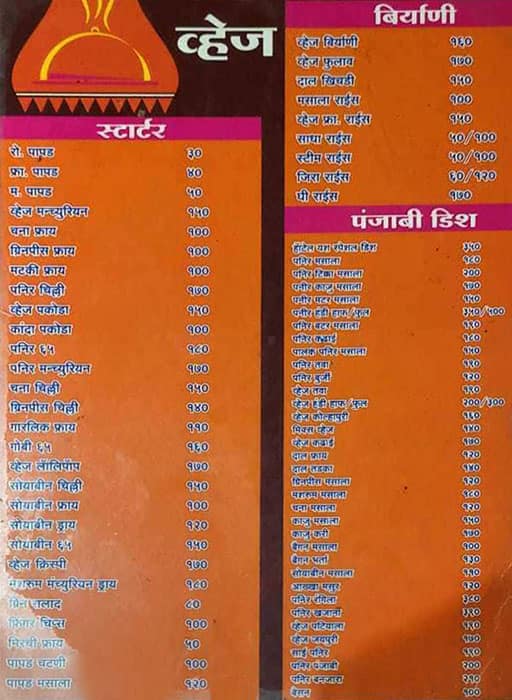 व्हेज
स्टार्टर
रो. पापड ३०
फ्रा. पापड ४०
म. पापड ५०
व्हेज मन्च्युरियन १५०
चना फ्राय १००
ग्रिनपीस फ्राय १००
मटकी फ्राय १००
पनिर चिल्ली १७०
व्हेज पकोडा १५०
कांदा पकोडा १००
पनिर ६५ १८०
पनिर मन्च्युरियन १७०
चना चिल्ली १५०
ग्रिनपीस चिल्ली १४०
गारलिक फ्राय ११०
गोबी ६५ १६०
व्हेज लॅालिपॉप १७०
सोयाबीन चिल्ली १५०
सोयाबीन फ्राय १००
सोयाबीन ड्राय १२०
सोयाबीन ६५ १५०
व्हेज क्रिस्पी १७०
मशरुम मंच्युरियन ड्राय १८०
ग्रिन सलाद ८०
फिंगर चिप्स १००
मिरची फ्राय ५०
पापड चटणी १००
पापड मसाला १२०
बिर्याणी
व्हेज बिर्याणी १६०
व्हेज फुलाव १७०
दाल खिचडी १५०
मसाला राईस १००
व्हेज फ्रा. राईस १५०
साधा राईस ५०/१००
स्टीम राईस ५०/१००
जिरा राईस ६०/१२०
घी राईस १७०
पंजाबी डिश
हॉटेल यश स्पेशल डिश ३५०
पनिर मसाला १८०
पनिर टिक्का मसाला २००
पनीर काजु मसाला १७०
पनीर मटर मसाला १५०
पनीर हंडी हाफ/फुल ३५०/५००
पनिर बटर मसाला १९०
पनिर कढाई १८०
पालक पनिर मसाला १५०
पनिर तवा १९०
पनिर बुर्जी १२०
व्हेज तवा १९०
व्हेज हंडी हाफ/फुल २००/३००
व्हेज कोल्हापुरी १६०
मिक्स व्हेज १४०
व्हेज कढाई १७०
दाल फ्राय १२०
दाल तडका १४०
ग्रिनपीस मसाला १२०
मशरुम मसाला १८०
चना मसाला १२०
काजु मसाला १५०
काजु करी १७०
बैगन मसाला १००
बैगन भर्ता १३०
सोयाबीन मसाला ११०
आख्खा मसुर १२०
पनिर रंगिला ३८०
पनिर खजाना ३९०
व्हेज पटियाला १९०
व्हेज जयपुरी १७०
साई पनिर १९०
पनिर पंजाबी २००
पनिर बनजारा २१०
बेसन १००